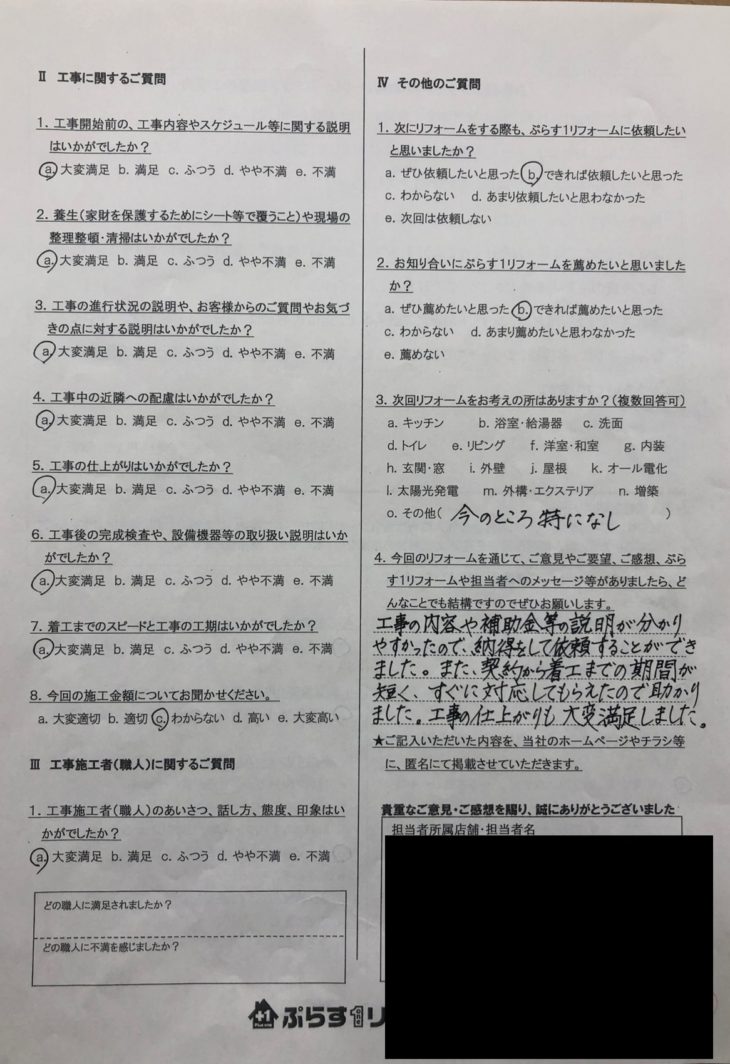 Ⅱ 工事に関するご質問
1. 工事開始前の、工事内容やスケジュール等に関する説明
はいかがでしたか？
a. 大変満足 b. 満足 c. ふつう d. やや不満 e. 不満
2. 養生(家財を保護するためにシート等で覆うこと)や現場の
整理整頓・清掃はいかがでしたか？
a. 大変満足 b. 満足 c. ふつう d. やや不満 e. 不満
3. 工事の進行状況の説明や、お客様からのご質問やお気づ
きの点に対する説明はいかがでしたか？
a. 大変満足 b. 満足 c. ふつう d. やや不満 e. 不満
4. 工事中の近隣への配慮はいかがでしたか？
a. 大変満足 b. 満足 c. ふつう d. やや不満 e. 不満
5. 工事の仕上がりはいかがでしたか？
a. 大変満足 b. 満足 c. ふつう d. やや不満 e. 不満
6. 工事後の完成検査や、設備機器等の取り扱い説明はいか
がでしたか？
a. 大変満足 b. 満足 c. ふつう d. やや不満 e. 不満
7. 着工までのスピードと工事の工期はいかがでしたか？
a. 大変満足 b. 満足 c. ふつう d. やや不満 e. 不満
8. 今回の施工金額についてお聞かせください。
a. 大変適切 b. 適切 c. わからない d. 高い e. 大変高い
Ⅲ 工事施工者(職人)に関するご質問
1. 工事施工者(職人)のあいさつ、話し方、態度、印象はい
かがでしたか？
a. 大変満足 b. 満足 c. ふつう d. やや不満 e. 不満
どの職人に満足されましたか？
どの職人に不満を感じましたか？
Ⅳ その他のご質問
1. 次にリフォームをする際も、ぷらす1リフォームに依頼したい
と思いましたか？
a. ぜひ依頼したいと思った b. できれば依頼したいと思った
c. わからない d. あまり依頼したいと思わなかった
e. 次回は依頼しない
2. お知り合いにぷらす1リフォームを薦めたいと思いました
か？
a. ぜひ薦めたいと思った b. できれば薦めたいと思った
c. わからない d. あまり薦めたいと思わなかった
e. 薦めない
3. 次回リフォームをお考えの所はありますか？(複数回答可)
a. キッチン b. 浴室・給湯器 c. 洗面
d. トイレ e. リビング f. 洋室・和室 g. 内装
h. 玄関・窓 i. 外壁 j. 屋根 k. オール電化
l. 太陽光発電 m. 外構・エクステリア n. 増築
o. その他( 今のところ特になし )
4. 今回のリフォームを通じて、ご意見やご要望、ご感想、ぷら
す1リフォームや担当者へのメッセージ等がありましたら、ど
んなことでも結構ですのでぜひお願いします。
工事の内容や補助金等の説明が分かり
やすかったので、納得をして依頼することができ
ました。また、契約から着工までの期間が
短く、すぐに対応してもらえたので助かり
ました。工事の仕上がりも大変満足しました。
★ご記入いただいた内容を、当社のホームページやチラシ等
に、匿名にて掲載させていただきます。
貴重なご意見・ご感想を賜り、誠にありがとうございました
担当者所属店舗・担当者名
+1 ぷらす1 one リ